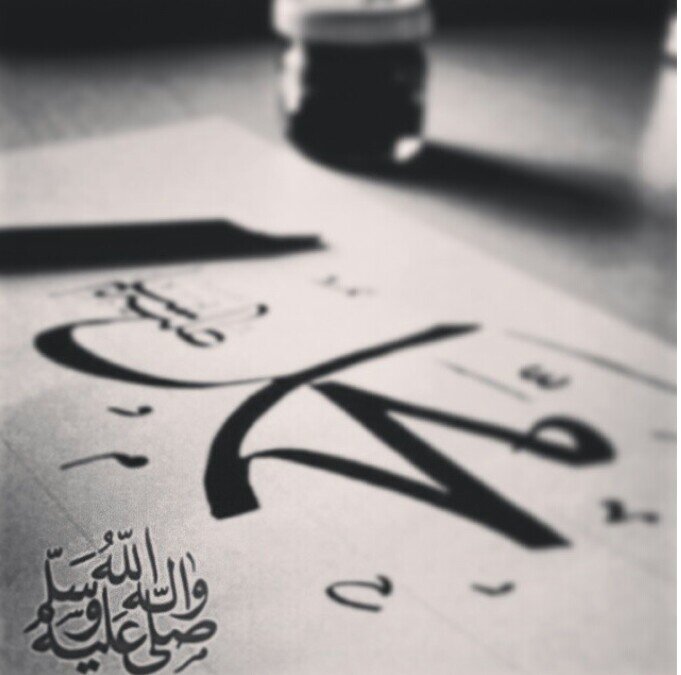 محمد
صلى الله عليه واله وسلم